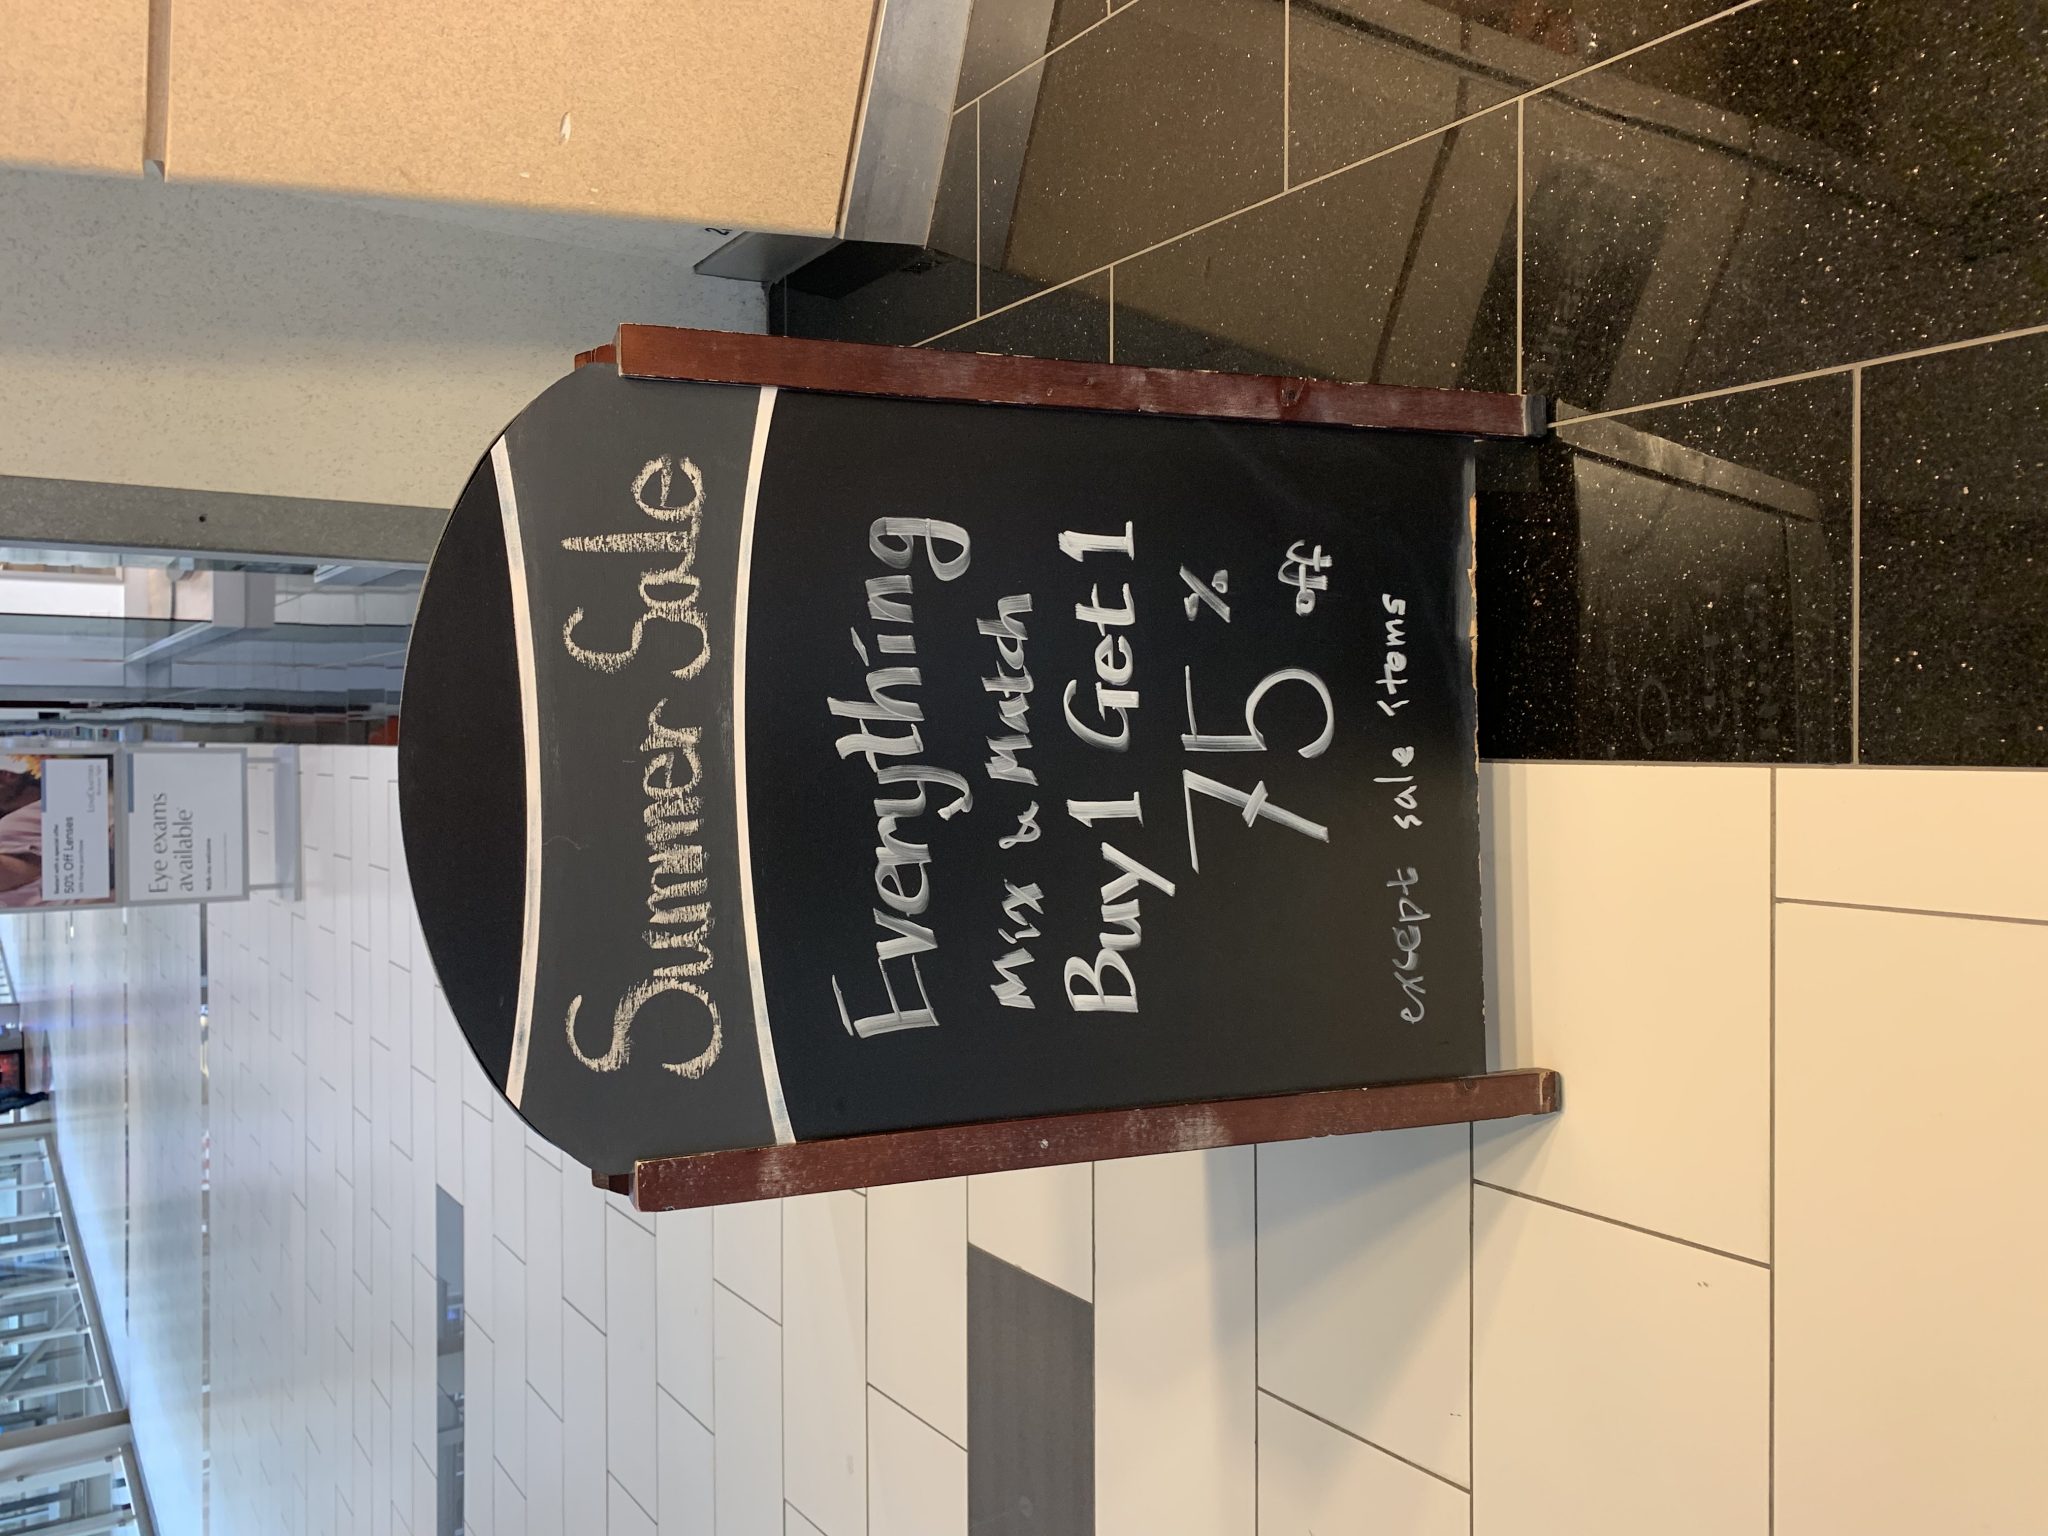 Summer Sale
Everything
Mix & Match
Buy 1 Get 1
75 % off
except sale items
50% Off Lenses
LensCrafters
Eye exams
available
Walk-ins welcome